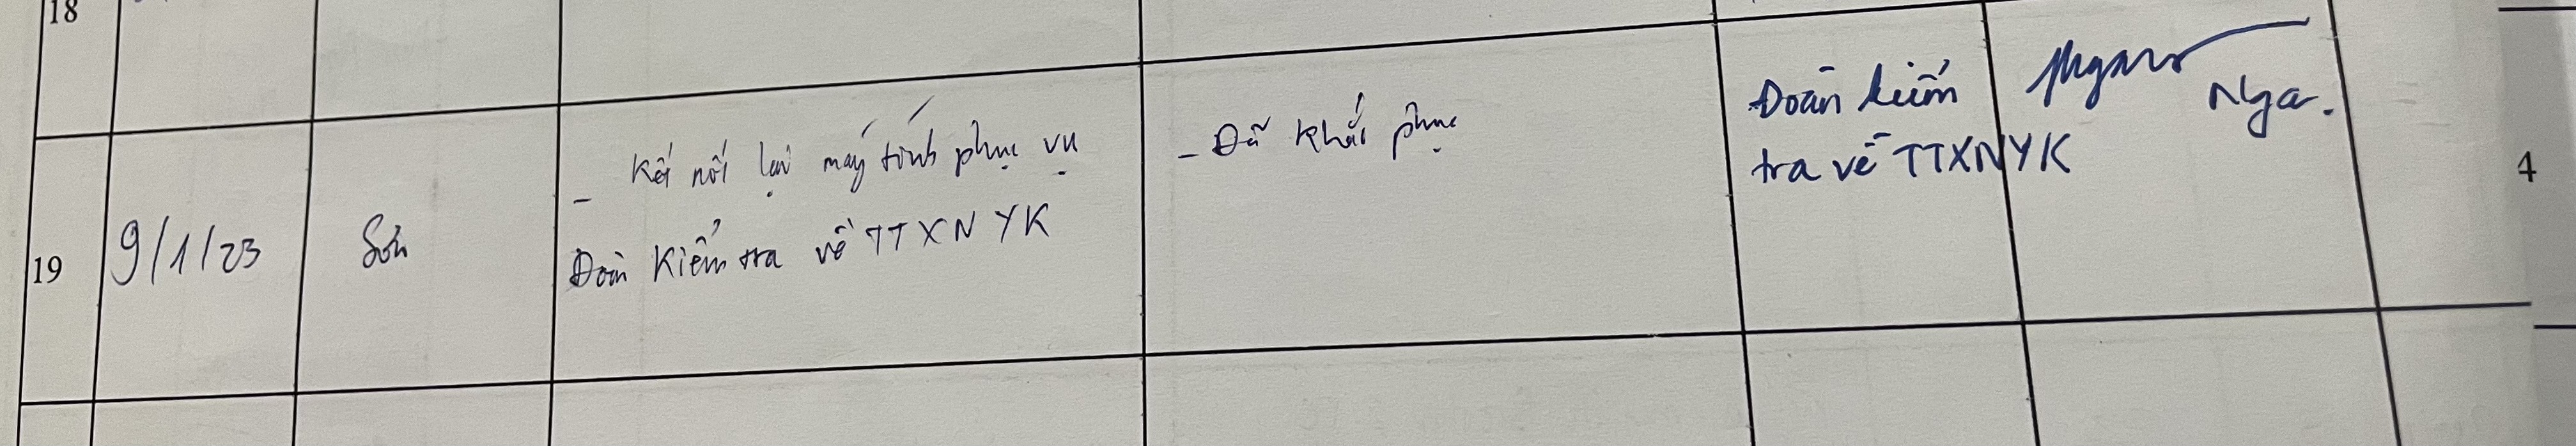 18
19
9/1/23
Sơn
- Kết nối lại máy tính phục vụ
Đoàn Kiểm tra về TTXN YK
- Đã khắc phục
Đoàn kiểm
tra về TTXNYK
Nga.
4